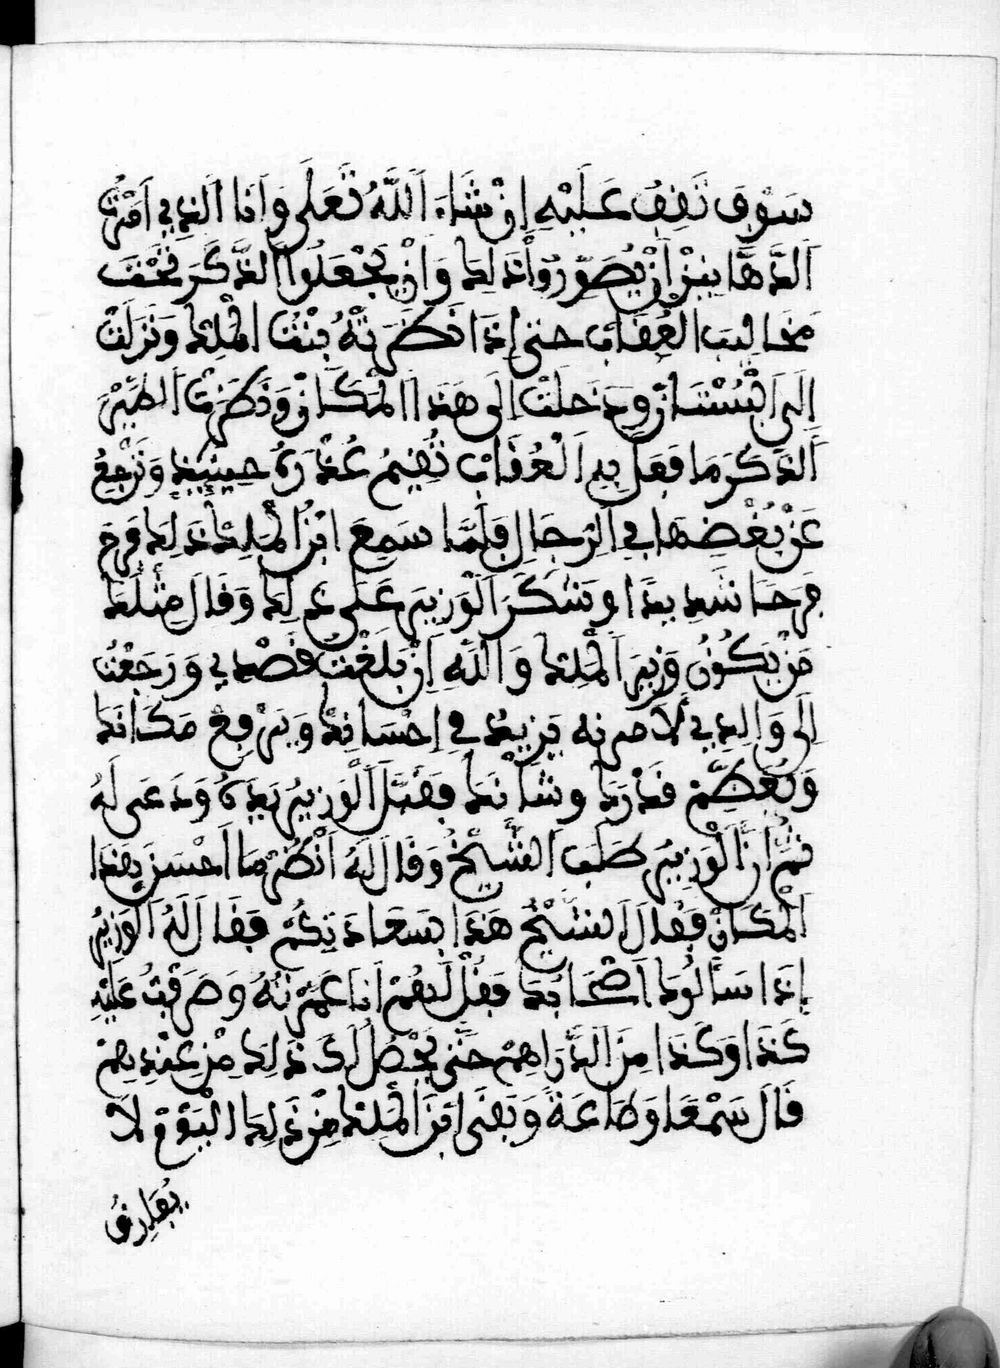 سَوْفَ تَقِفُ عَلَيْهِ إِنْ شَاءَ اَللَّهُ تَعَلَى وَاَنَا اَلذِي اَمَرْتُ
اَلدَّهَّانِينْ اَنْ يُصَوِّرُوا ذَلِكَ وَاَنْ يَجْعَلُوا الذَّكَرَ تَحْتَ
مَخَالِيبَ الْعُقَابِ حَتَى إِذَا نَظَرَتْهُ بِنْتُ الْمَلِكِ وَنَزَلَتْ
اِلَى اَلْبُسْتَانِ وَدَخَلَتْ اِلَى هَذَا الْمَكَانِ وَنَظَرَتْ اَلطَّيْرَ
اَلذَّكَرَ مَا فَعَلَ بِهِ اَلْعُقَابُ تُقِيمُ عُذْرَهُ حِينَئِذٍ وَتَرْجِعُ
عَنْ بُغْضِهَا فِي الرِّجَالِ فَلَمَّا سَمِعَ ابْنُ الْمَلِكِ ذَلِكَ فَرِحَ
فَرَحًا شَدِيدًا وَشَكَرَ الْوَزِيرَ عَلَى ذَلِكَ وَقَالَ مِثْلُكَ
مَنْ يَكُونُ وَزِيرَ الْمَلِكِ وَاللَّهِ اِنْ بَلَغْتُ قَصْدِي وَرَجَعْتُ
اِلَى وَالِدِي لَأَمَرْتُهُ يَزِيدُ فِي إِحْسَانِكَ وَيَرْفِعُ مَكَانَكَ
وَيُعَظِّمْ قَدْرَكَ وَشَأْنَكَ فَقَبَّلَ اَلْوَزِيرُ يَدَهُ وَدَعَى لَهُ
ثُمَّ اِنَّ الْوَزِيرَ طَلَبَ الشَّيْخُ وَقَالَ لَهُ اَنْظُرْ مَا اَحْسَنَ هَذَا
اَلْمَكَانْ فَقَالَ اَلشَّيْخُ هَذَا بِسَعَادَتِكُمْ فَقَالَ لَهُ اَلْوَزِيرُ
إِذَا سَأَلُوكَ اَصْحَابُكَ فَقُلْ لَهُمْ اَنَا عَمَّرْتُهُ وَصَرَفْتُ عَلَيْهِ
كَذَا وَكَذَا مِنَ الدَّرَاهِمْ حَتَّى يَحْصُلَ لَكَ ذَلِكَ مِنْ عِنْدِهِمْ
قَالَ سَمْعًا وَطَاعَةً وَبَقَى ابْنَ الْمَلِكِ مِنْ ذَلِكَ الْيَوْمْ لاَ
يُفَارِقُ